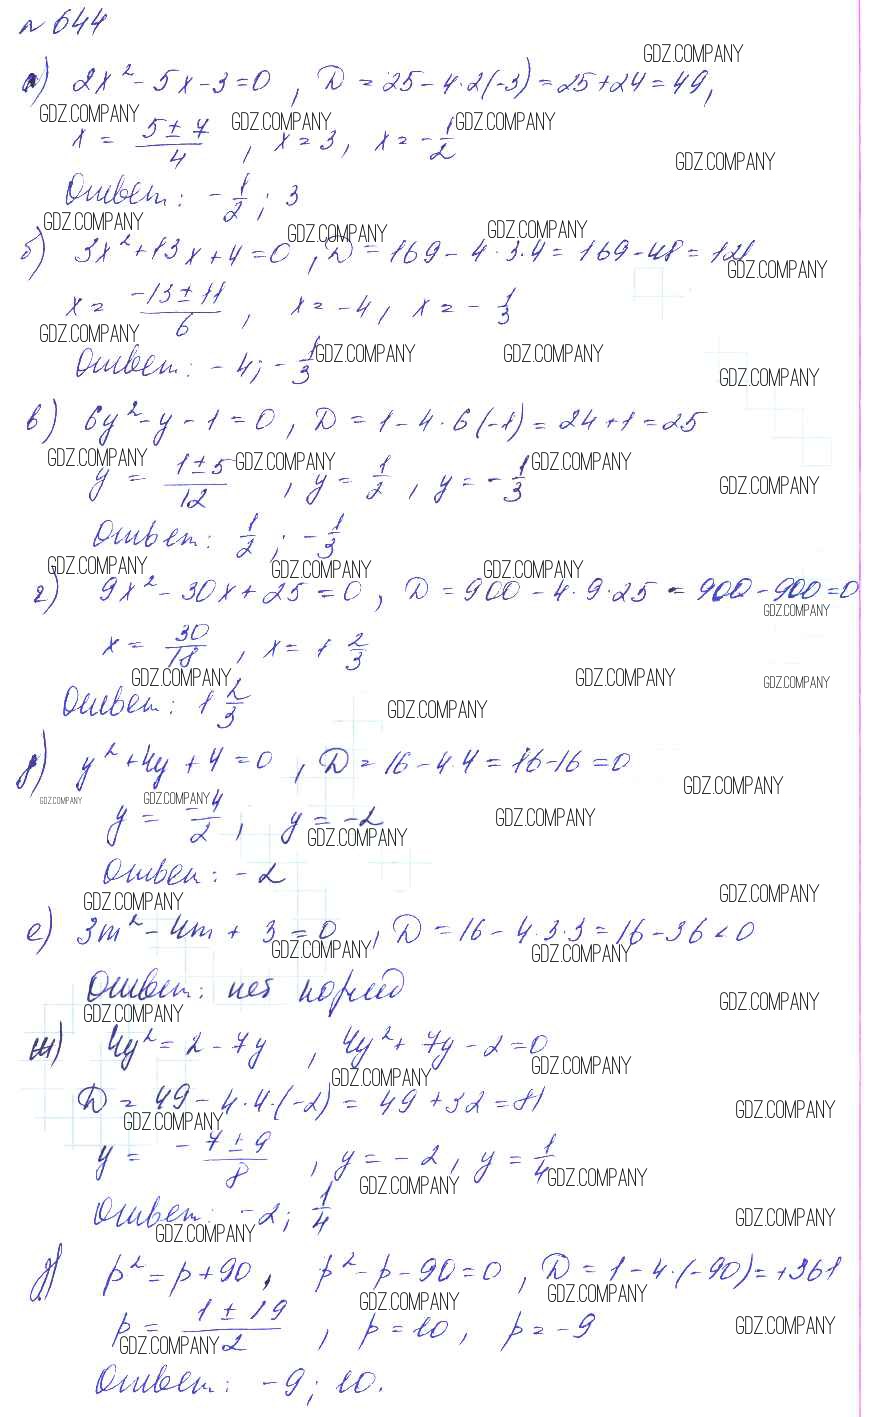 № 644
GDZ.COMPANY
а) 2x² - 5x - 3 = 0 , D = 25 - 4·2(-3) = 25 + 24 = 49,
GDZ.COMPANY GDZ.COMPANY GDZ.COMPANY
x = (5 ± 7)/4 , x = 3, x = -1/2
GDZ.COMPANY
Ответ: -1/2; 3
GDZ.COMPANY GDZ.COMPANY GDZ.COMPANY
б) 3x² + 13x + 4 = 0 , D = 169 - 4·3·4 = 169 - 48 = 121
GDZ.COMPANY
x = (-13 ± 11)/6 , x = -4, x = -1/3
GDZ.COMPANY GDZ.COMPANY GDZ.COMPANY
Ответ: -4; -1/3
GDZ.COMPANY
в) 6y² - y - 1 = 0 , D = 1 - 4·6(-1) = 24 + 1 = 25
GDZ.COMPANY GDZ.COMPANY GDZ.COMPANY
y = (1 ± 5)/12 , y = 1/2 , y = -1/3
GDZ.COMPANY
Ответ: 1/2; -1/3
GDZ.COMPANY GDZ.COMPANY GDZ.COMPANY
г) 9x² - 30x + 25 = 0 , D = 900 - 4·9·25 = 900 - 900 = 0
GDZ.COMPANY
x = 30/18 , x = 1 2/3
GDZ.COMPANY GDZ.COMPANY GDZ.COMPANY
Ответ: 1 2/3
GDZ.COMPANY
д) y² + 4y + 4 = 0 , D = 16 - 4·4 = 16 - 16 = 0
GDZ.COMPANY
GDZ.COMPANY GDZ.COMPANY
y = -4/2 , y = -2
GDZ.COMPANY GDZ.COMPANY
Ответ: -2
GDZ.COMPANY GDZ.COMPANY
е) 3m² - 4m + 3 = 0 , D = 16 - 4·3·3 = 16 - 36 < 0
GDZ.COMPANY GDZ.COMPANY
Ответ: нет корней
GDZ.COMPANY GDZ.COMPANY
ж) 4y² = 2 - 7y , 4y² + 7y - 2 = 0
GDZ.COMPANY GDZ.COMPANY
D = 49 - 4·4·(-2) = 49 + 32 = 81
GDZ.COMPANY GDZ.COMPANY
y = (-7 ± 9)/8 , y = -2, y = 1/4
GDZ.COMPANY GDZ.COMPANY
Ответ: -2; 1/4
GDZ.COMPANY GDZ.COMPANY
p² = p + 90, p² - p - 90 = 0 , D = 1 - 4·(-90) = +361
GDZ.COMPANY GDZ.COMPANY
p = (1 ± 19)/2 , p = 10, p = -9
GDZ.COMPANY GDZ.COMPANY
Ответ: -9; 10.